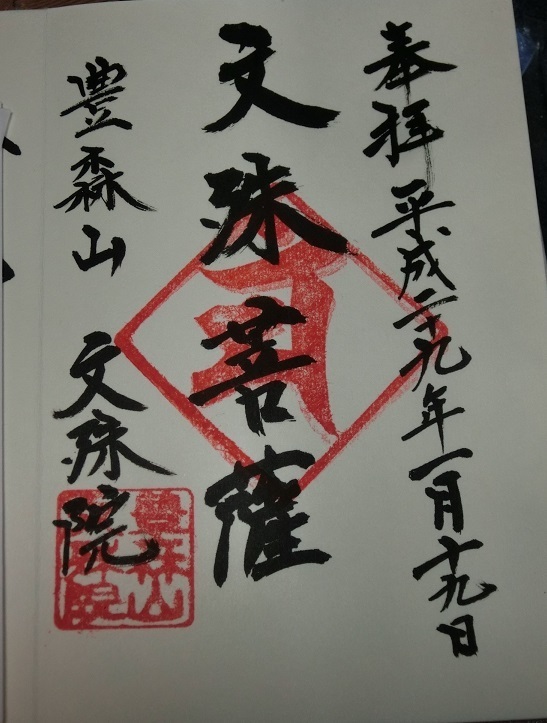 奉拝 平成二十九年一月十九日
文殊菩薩
豊森山 文殊院
豊森山
文殊院